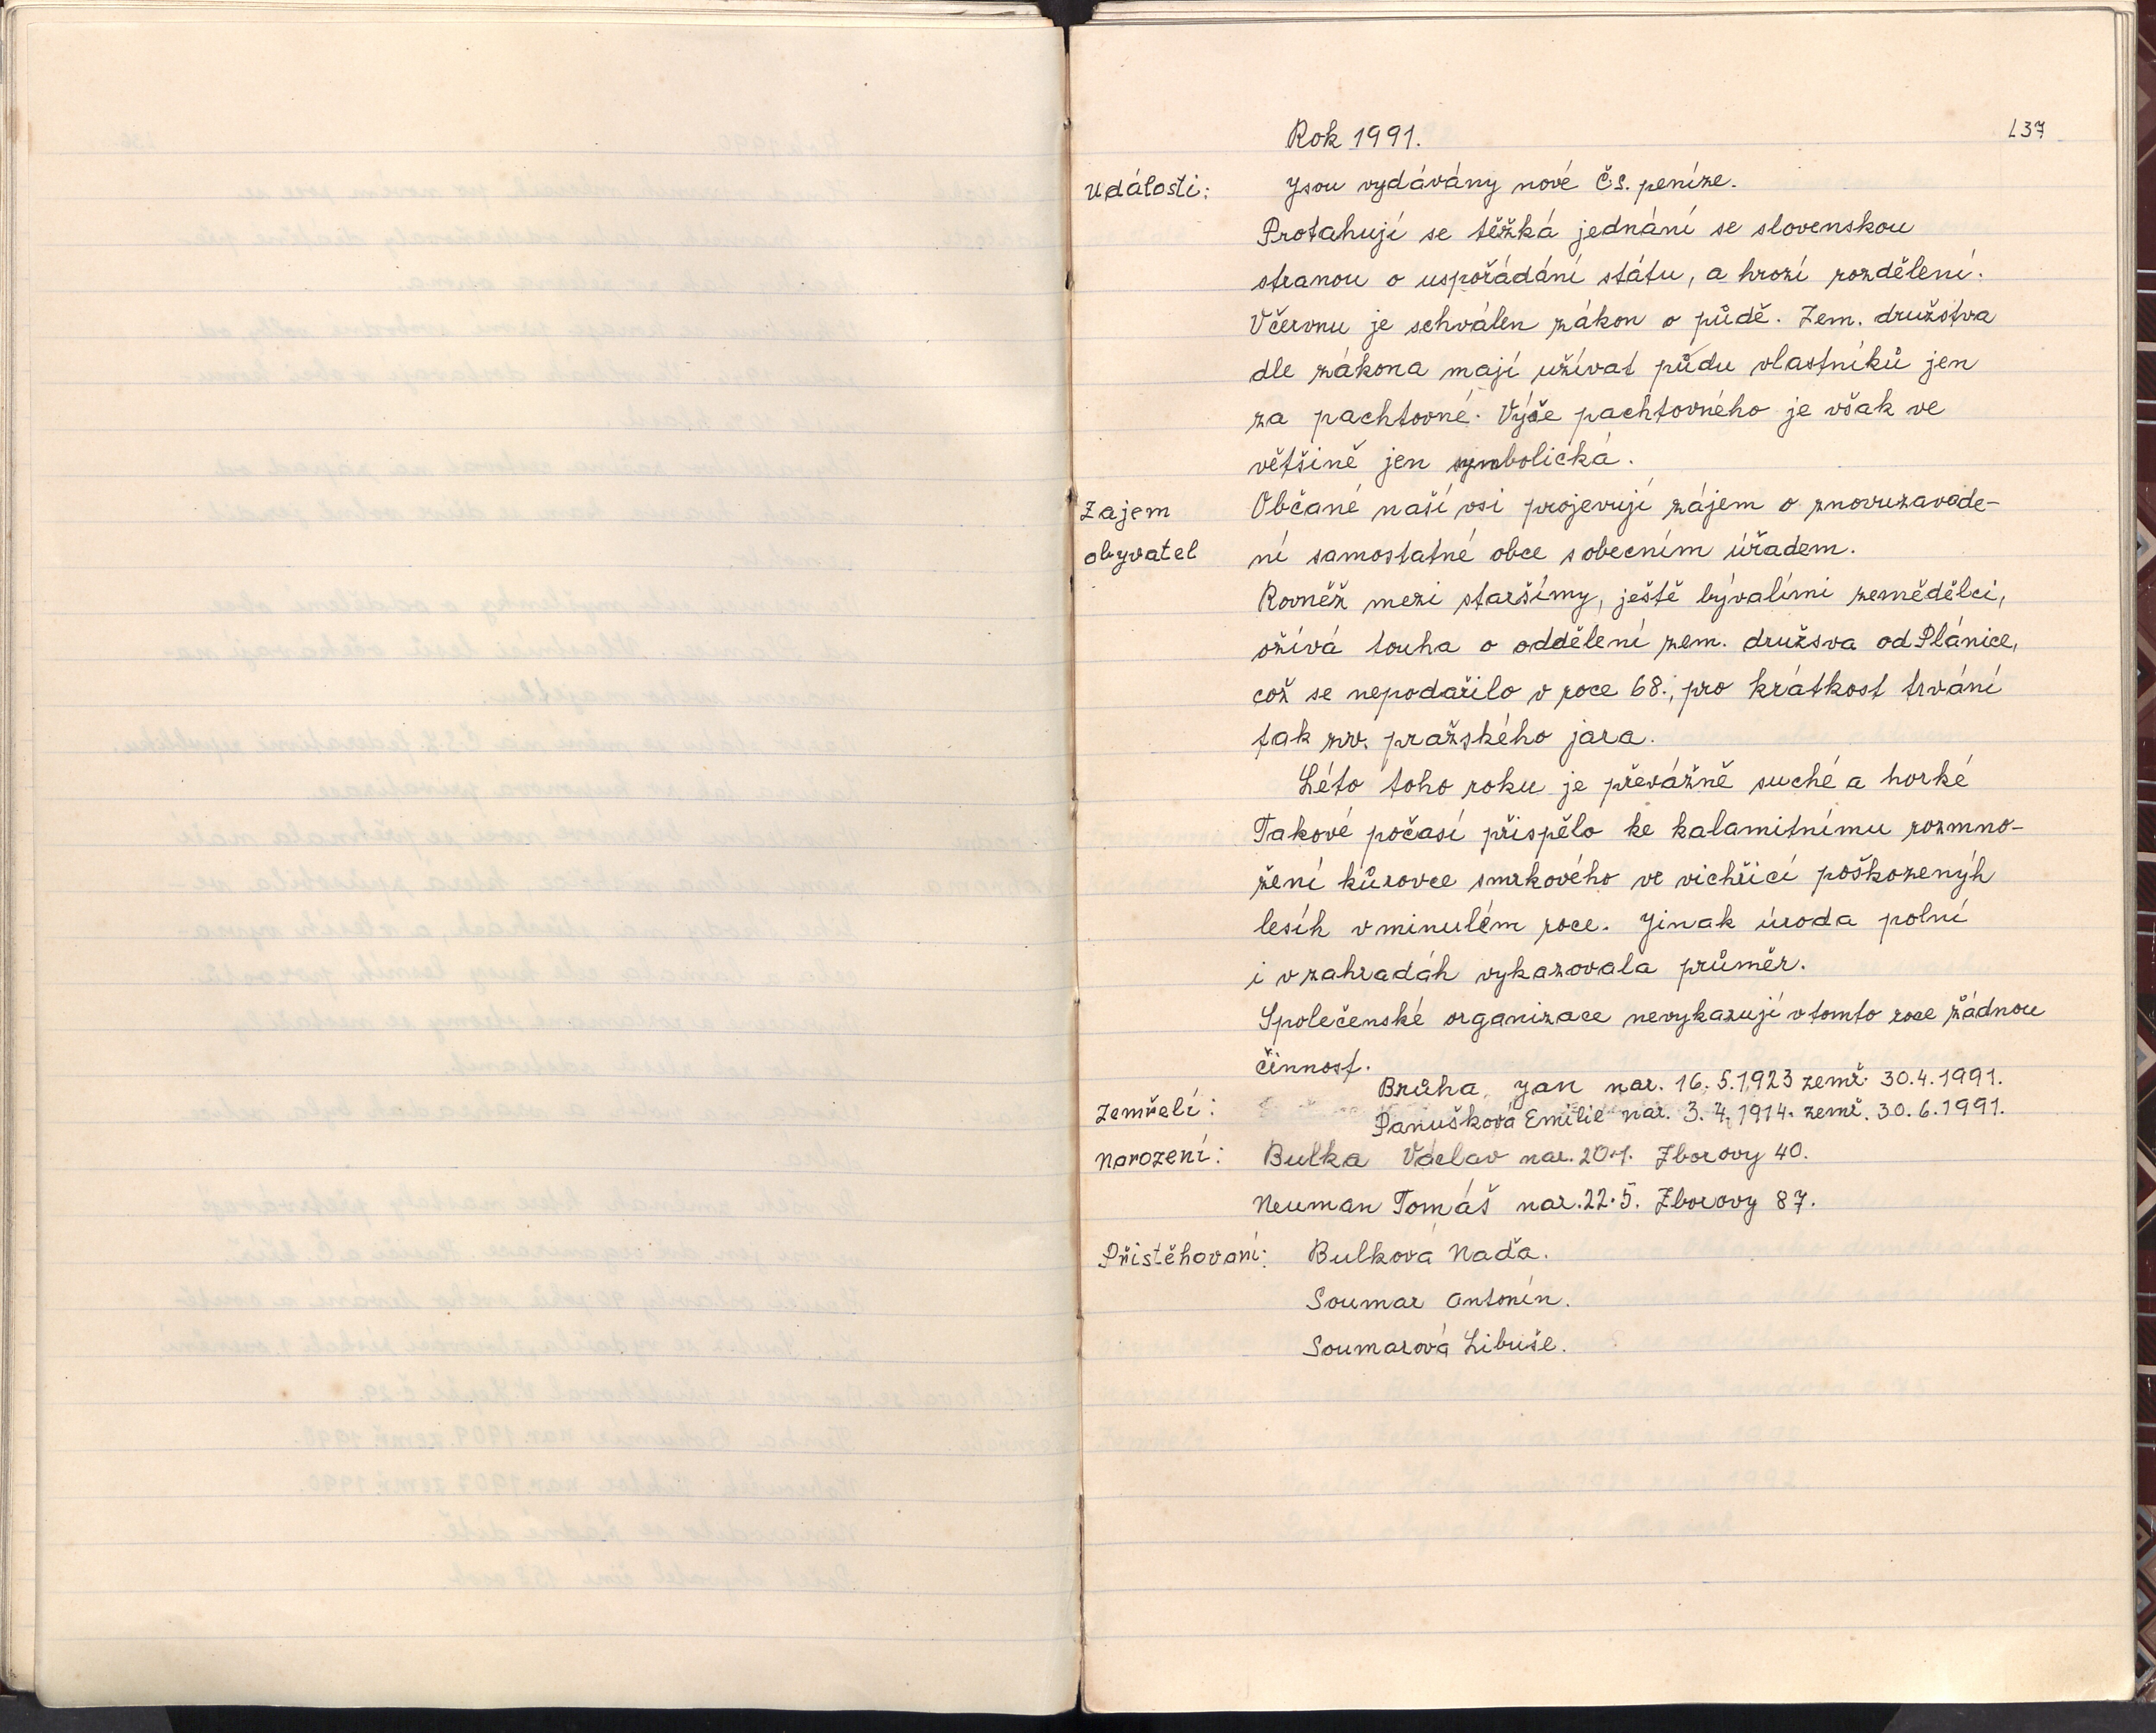 137
Rok 1991.
Události: Jsou vydávány nové Čs. peníze.
Protahují se těžká jednání se slovenskou
stranou o uspořádání státu, a hrozí rozdělení.
Včervnu je schválen zákon o půdě. Zem. družstva
dle zákona mají užívat půdu vlastníků jen
za pachtovné. Výše pachtovného je však ve
většině jen symbolická.
Zajem Občané naší vsi projevují zájem o znovuzavede-
obyvatel ní samostatné obce sobecním úřadem.
Rovněž mezi staršímy, ještě bývalími zemědělci,
ožívá touha o oddělení zem. družsva od Plánice,
což se nepodařilo v roce 68., pro krátkost trvání
tak zv. pražského jara.
Léto toho roku je převážně suché a horké
Takové počasí přispělo ke kalamitnímu rozmno-
žení kůrovce smrkového ve vichřicí poškozenýh
lesíh vminulém roce. Jinak úroda polní
i vzahradáh vykazovala průměr.
Společenské organizace nevykazují vtomto roce žádnou
činnost.
Brůha, Jan nar. 16. 5. 1923 zemř. 30. 4. 1991.
Zemřelí: Panušková Emilie nar. 3. 4. 1914. zemř. 30. 6. 1991.
Narození: Bulka Václav nar. 20.1. Zborovy 40.
Neuman Tomáš nar. 22.5. Zborovy 87.
Přistěhovaní: Bulková Naďa.
Soumar Antonín.
Soumarová Libuše.